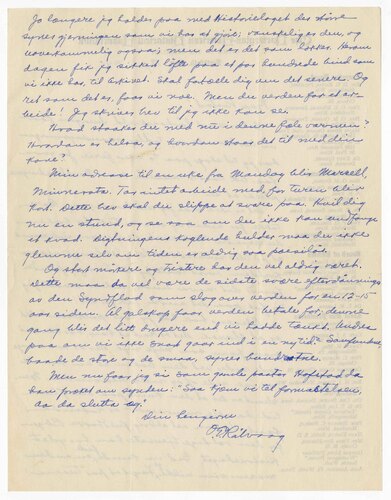 Jo længere jeg holder paa med Historielaget des større
synes gjerningen som vi har at gjøre; vanskelig er den, og
uoverkommelig ogsaa; men det er det som lokker. Her om
dagen fik jeg sikkert løfte paa et par hundrede bind som
vi ikke har, til Arkivet. Skal fortælle dig om det senere. Og
ret som det er, faar vi noe. Men du verden for et ar-
beide! Jeg skriver brev til jeg ikke kan se.
Hvad staaker du med nu i denne fæle varmen?
Hvordan er helsa, og hvordan staar det til med din
kone?
Min adresse til en uke fra Mandag blir Marcell,
Minnesota. Tar intet arbeide med, for turen blir
kort. Dette brev skal du slippe at svare paa. Hvil dig
nu en stund, og se saa om du ikke kan undfange
et kvad. Digtningens koglende hulder maa du ikke
glemme selv om tiden er aldrig saa poesiløs
Og stort mørkere og tristere har den vel aldrig været.
Dette maa da vel være de sidste svære efterdønninger
av den Syndflod som slog over verden for en 13-15
aar siden. Til galskap faar verden betale for, denne
gang blev det litt dyrere end vi hadde tænkt. Undres
paa om vi ikke snart gaar ind i en ny tid? Samfundene,
baade de store og de smaa, synes bundraatne.
Men nu faar jeg si som gamle pastor Hofstad da
han præket om synden: "Saa kjem vi til formattelsen,
aa da slutta eg."
Din hengivne
O. E. Rølvaag